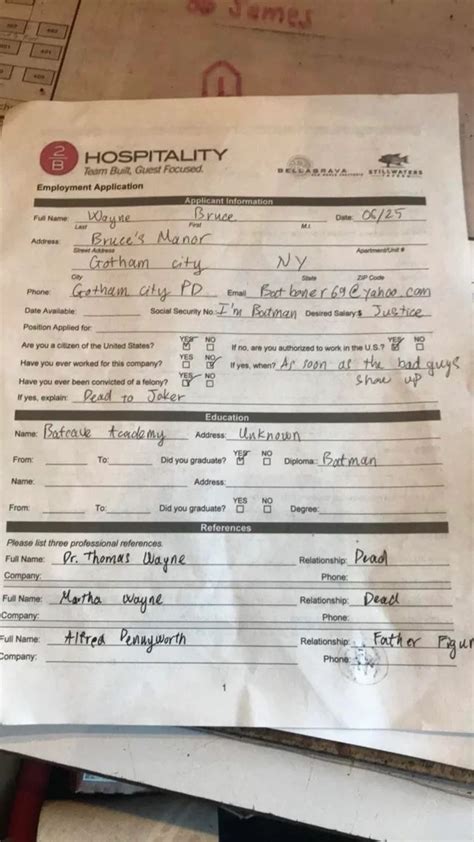 St James
407
402
401
403
2
B
HOSPITALITY
Team Built, Guest Focused.
BELLAGRAVA
STILLWATERS
Employment Application
Applicant Information
Full Name: Wayne Bruce Date: 06/25
Last First M.I.
Address: Bruce's Manor
Street Address Apartment/Unit #
Gotham city NY
City State ZIP Code
Phone: Gotham city PD Email Batboner69@yahoo.com
Date Available: Social Security No.: I'm Batman Desired Salary:$ Justice
Position Applied for:
Are you a citizen of the United States? YES NO If no, are you authorized to work in the U.S.? YES NO
Have you ever worked for this company? YES NO If yes, when? As soon as the bad guys
show up
Have you ever been convicted of a felony? YES NO
If yes, explain: Dead to Joker
Education
Name: Batcave Academy Address: Unknown
From: To: Did you graduate? YES NO Diploma: Batman
Name: Address:
From: To: Did you graduate? YES NO Degree:
References
Please list three professional references.
Full Name: Dr. Thomas Wayne Relationship: Dead
Company: Phone:
Full Name: Martha Wayne Relationship: Dead
Company: Phone:
Full Name: Alfred Pennyworth Relationship: Father Figur
Company: Phone:
1